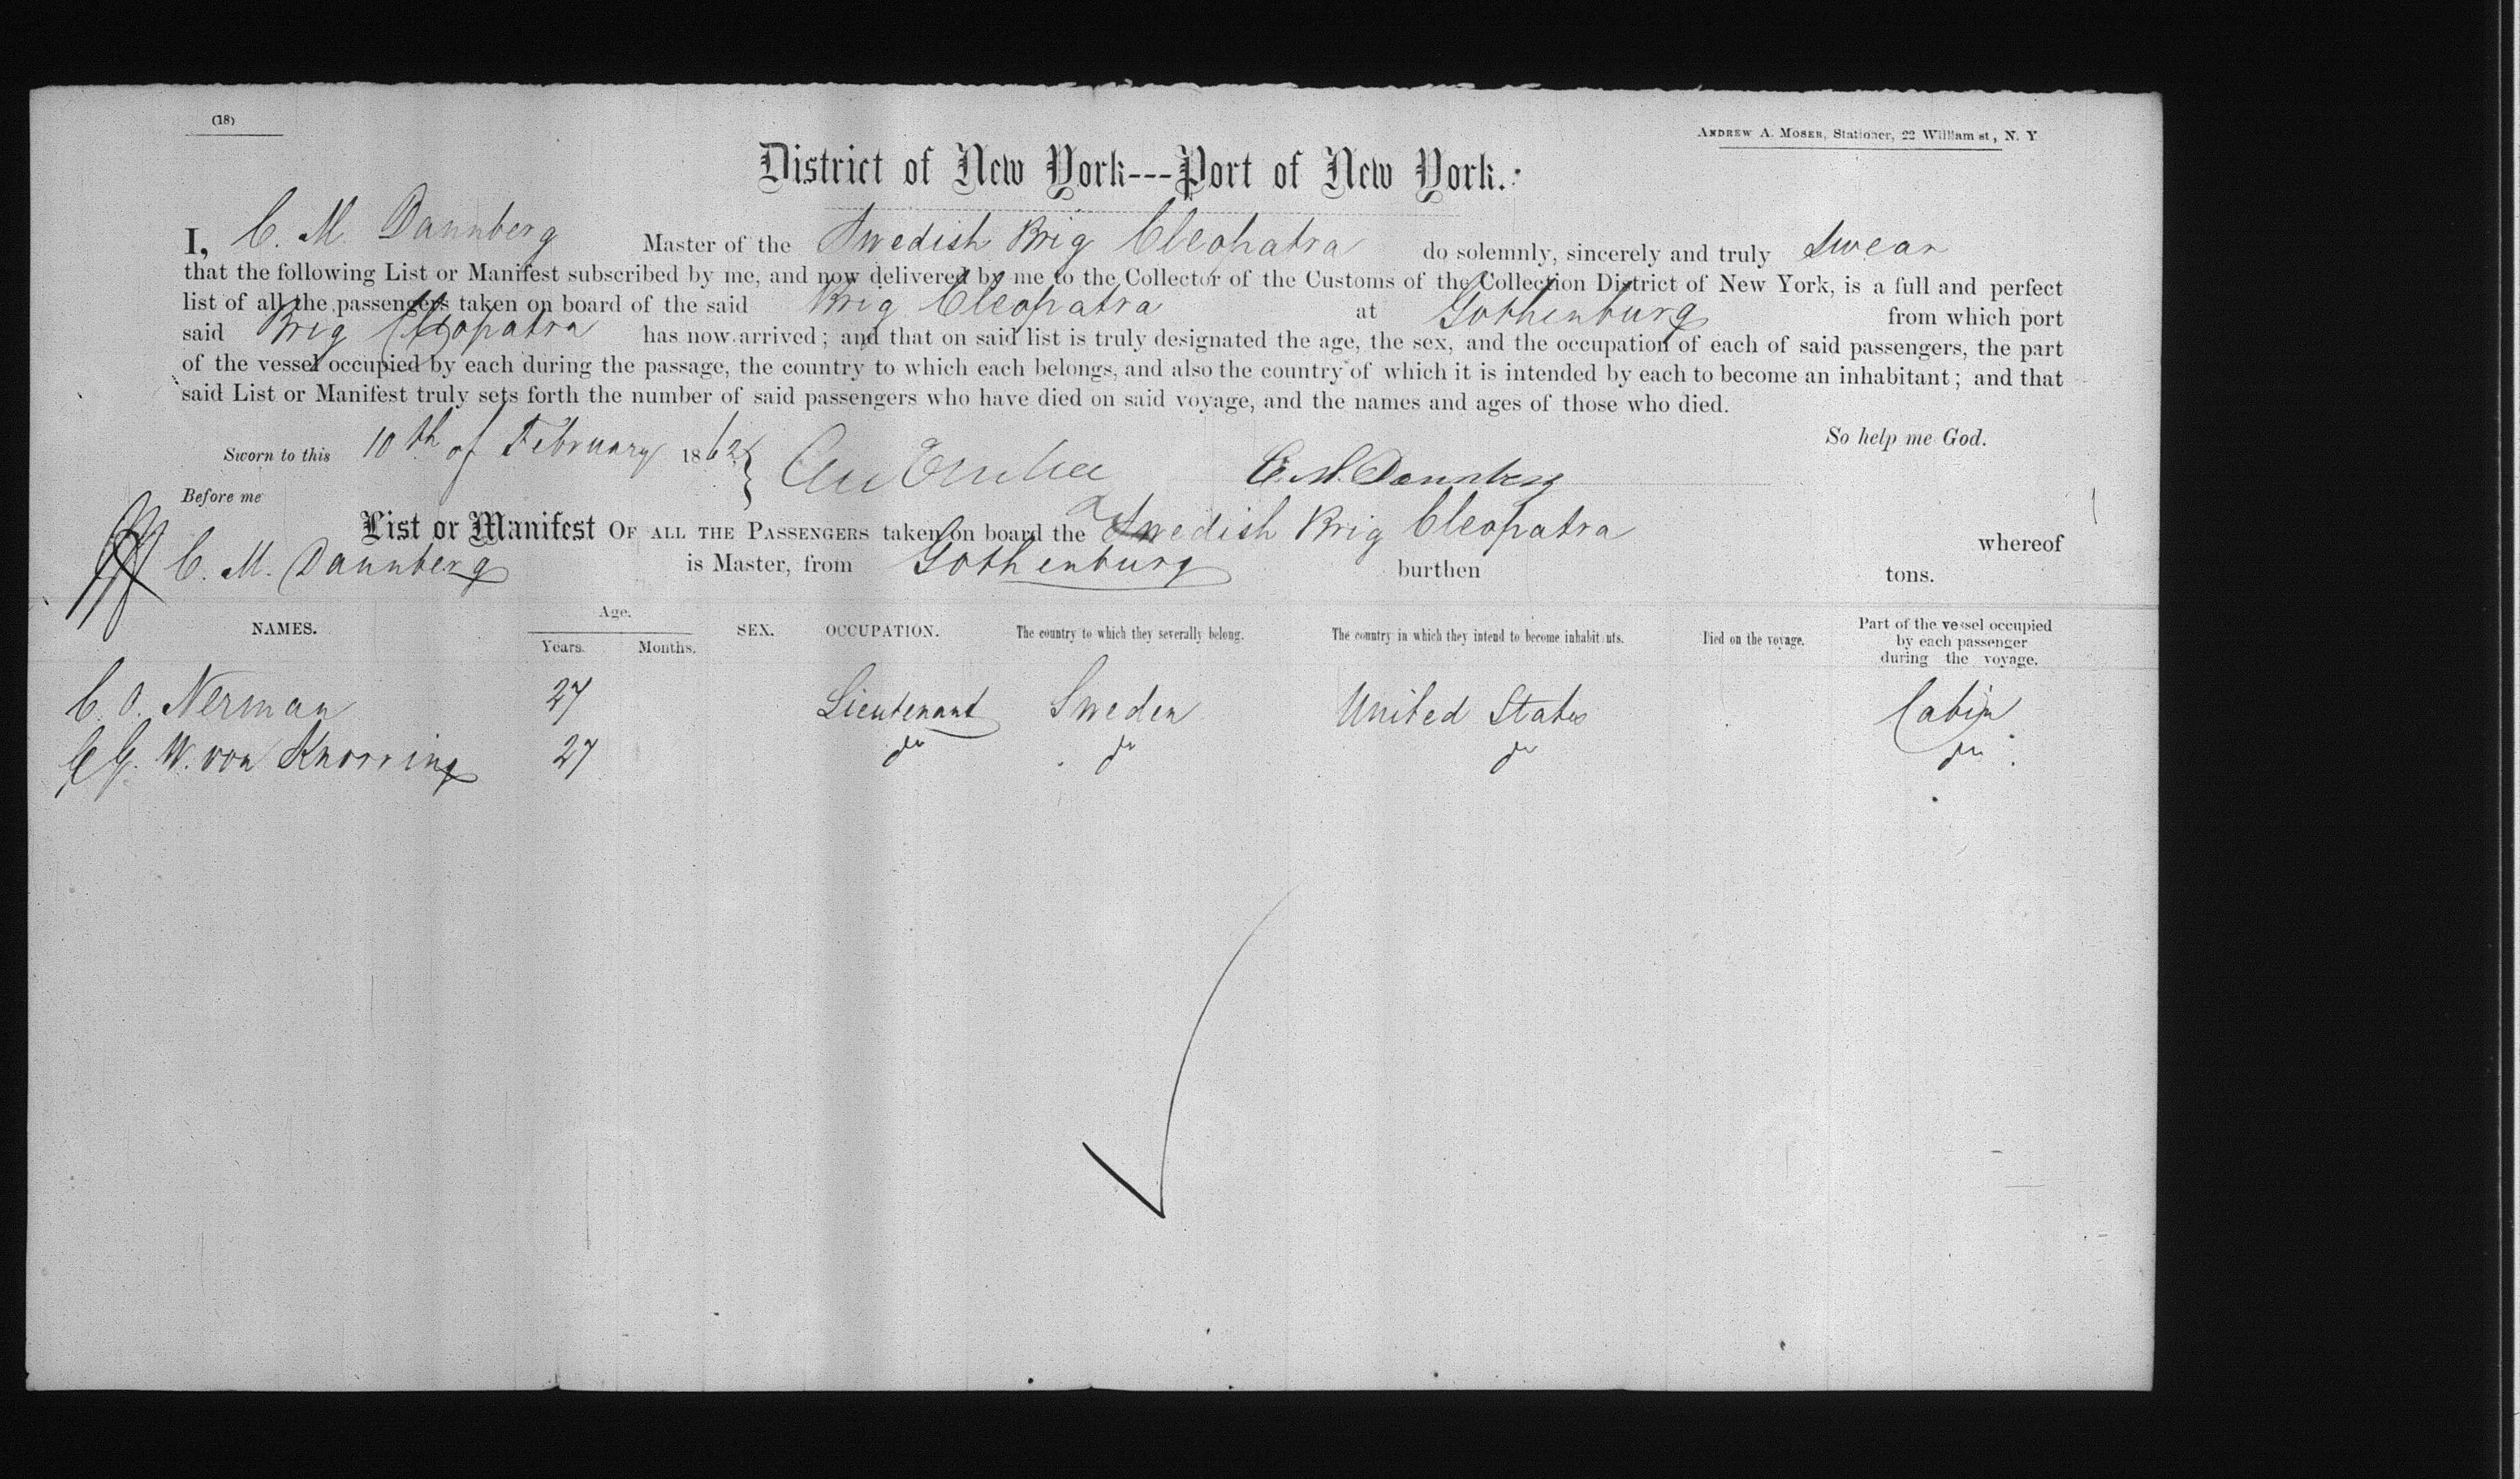 (18)
ANDREW A. MOSER, Stationer, 22 William st, N. Y
District of New York---Port of New York.:
I, C. M. Dannberg Master of the Swedish Brig Cleopatra do solemnly, sincerely and truly swear
that the following List or Manifest subscribed by me, and now delivered by me to the Collector of the Customs of the Collection District of New York, is a full and perfect
list of all the passengers taken on board of the said Brig Cleopatra at Gothenburg from which port
said Brig Cleopatra has now arrived; and that on said list is truly designated the age, the sex, and the occupation of each of said passengers, the part
of the vessel occupied by each during the passage, the country to which each belongs, and also the country of which it is intended by each to become an inhabitant; and that
said List or Manifest truly sets forth the number of said passengers who have died on said voyage, and the names and ages of those who died.
So help me God.
Sworn to this 10th of February 1862 C. M. Dannberg
Before me
List or Manifest OF ALL THE PASSENGERS taken on board the Swedish Brig Cleopatra whereof
C. M. Dannberg is Master, from Gothenburg burthen tons.
NAMES. Age. Years. Months. SEX. OCCUPATION. The country to which they severally belong. The country in which they intend to become inhabitants. Died on the voyage. Part of the vessel occupied by each passenger during the voyage.
C. O. Nerman 27 Lieutenant Sweden United States Cabin
G. W. von Knorring 27 do do do do